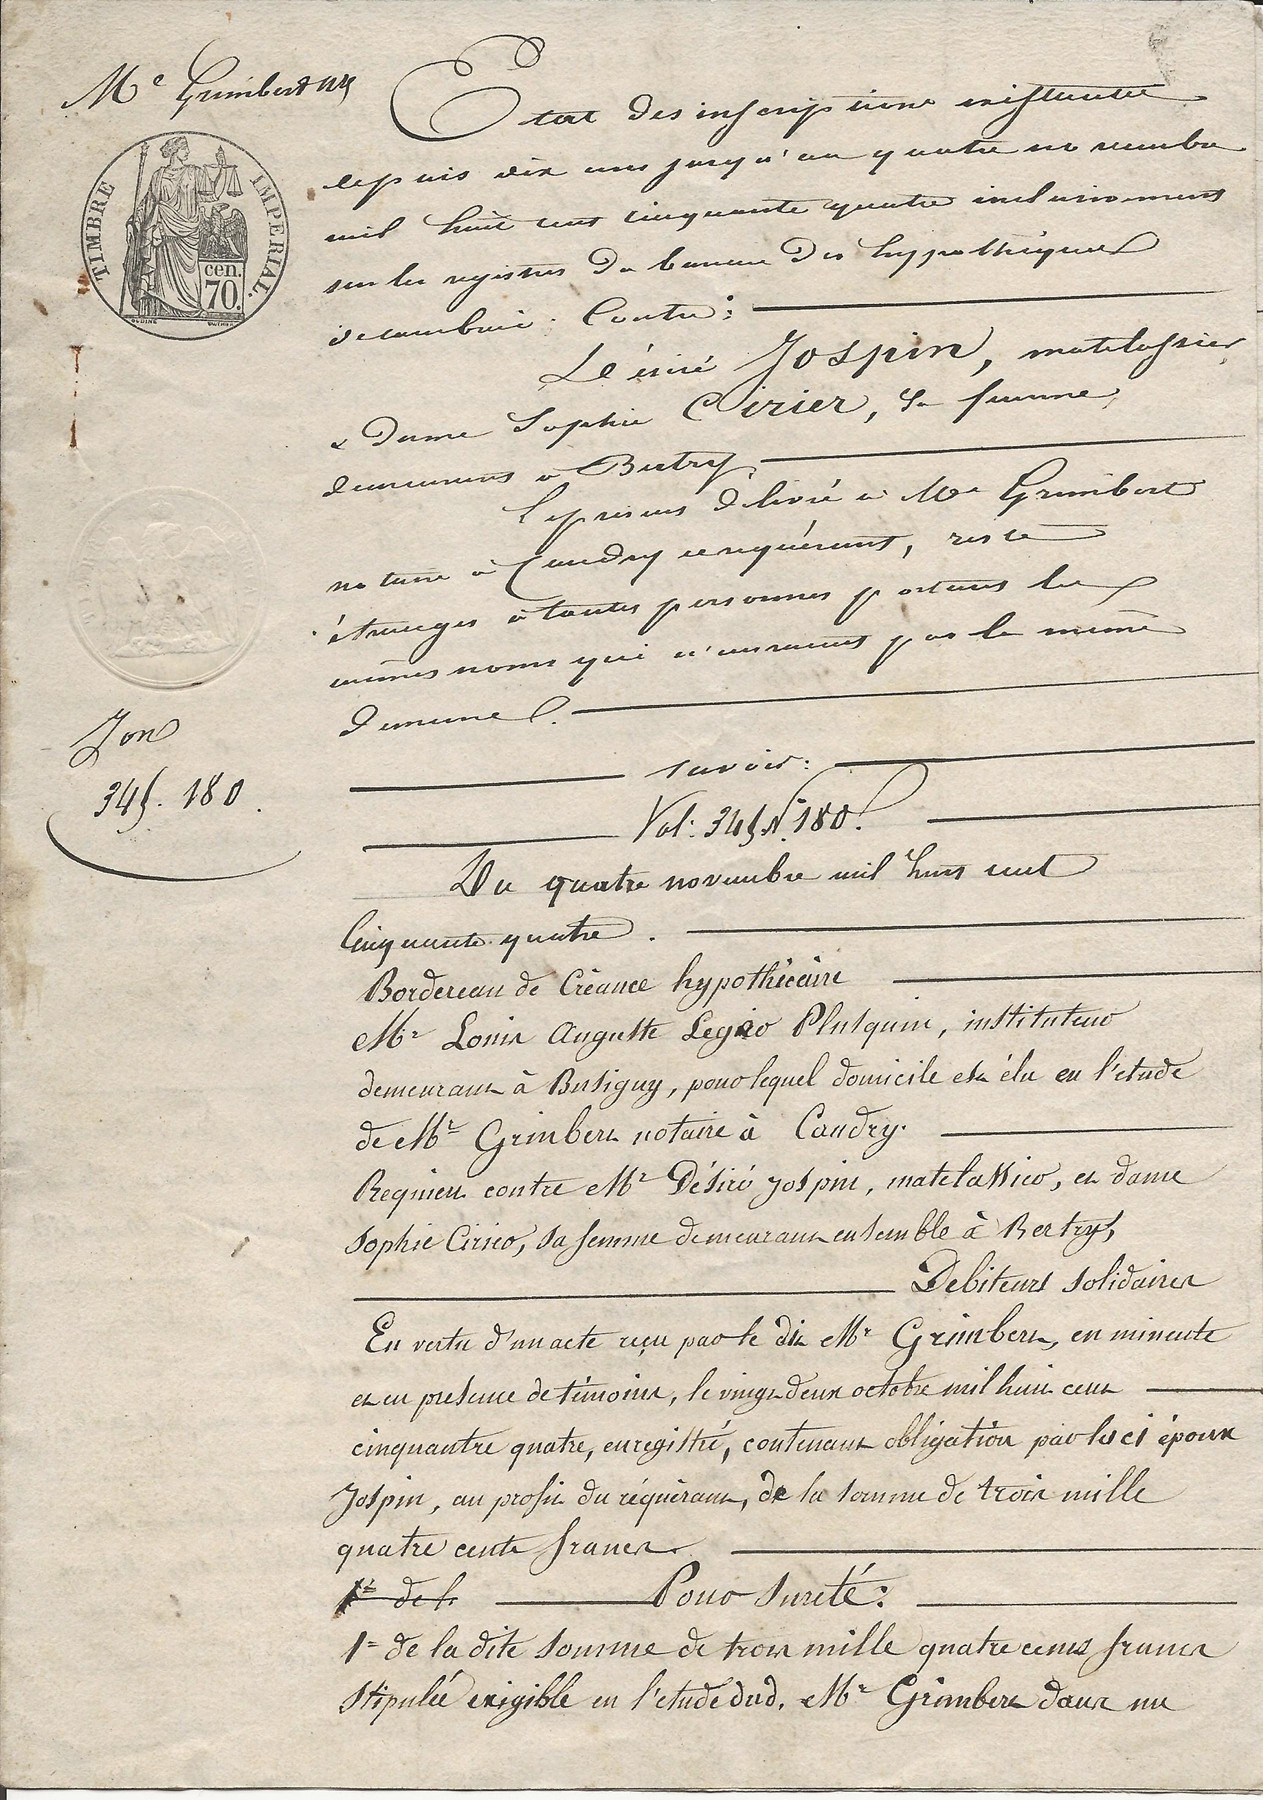 Me Grimbert nre
TIMBRE IMPERIAL.
cen.
70.
Etat des inscriptions existantes
depuis dix ans jusqu'au quatre novembre
mil huit cent cinquante quatre inclusivement
sur les registres du bureau des hypothèques
de cambrai. Contre:
Désiré Jospin, matelassier
& Dame Sophie Cirier, sa femme,
demeurant à Bertry
Le présent délivré à Me Grimbert
notaire à Caudry ce requérant, reste
étranger à toutes personnes portant les
mêmes noms qui n'auraient pas le même
domicile.
savoir:
Jon
345. 180.
Vol: 345 N° 180.
Du quatre novembre mil huit cent
Cinquante quatre.
Bordereau de Créance hypothécaire
Mr Louis Auguste Leger Plusquin, instituteur
demeurant à Busigny, pour lequel domicile est élu en l'etude
de Mr Grimbert notaire à Caudry.
Requiert contre Mr Désiré Jospin, matelassier, et dame
Sophie Cirier, sa femme demeurant ensemble à Bertry,
Debiteurs solidaires
En vertu d'un acte reçu par le dit Mr Grimbert, en minute
et en presence de témoins, le vingt deux octobre mil huit cent
cinquantre quatre, enregistré, contenant obligation par les ci époux
Jospin, au profit du réquérant, de la somme de trois mille
quatre cents francs.
1° de l.
Pour sureté:
1° de la dite somme de trois mille quatre cents francs
stipulée exigible en l'etude dud. Mr Grimbert dans un